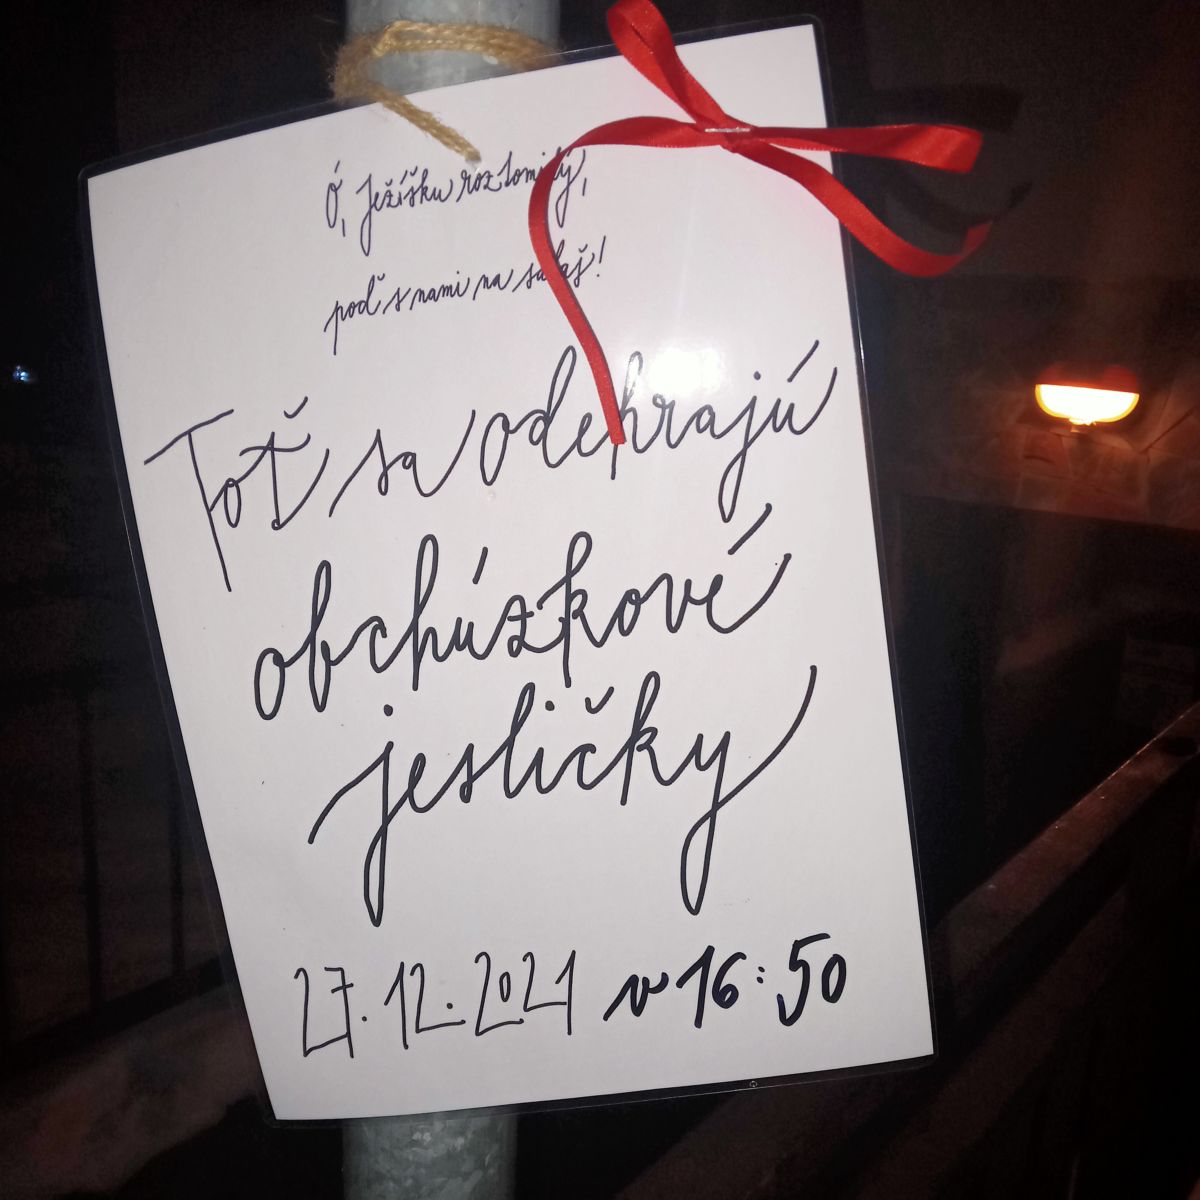 Ó, Ježíšku roztomilý,
poď s nami na salaš!
Toť sa odehrajú
obchúzkové
jesličky
27.12.2021 v 16:50